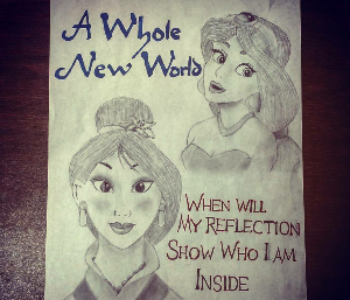 A Whole
New World
WHEN WILL
MY REFLECTION
SHOW WHO I AM
INSIDE